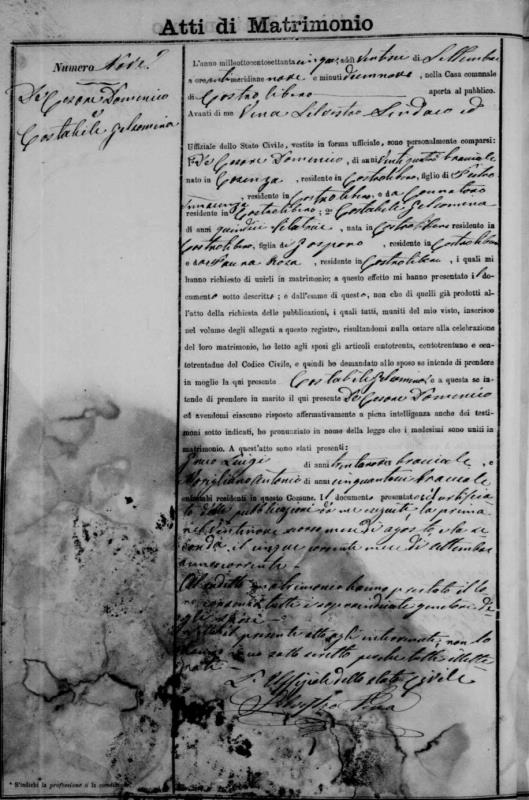 Atti di Matrimonio
Numero Nove
De Cesare Domenico
e
Costabile Gelsomina
L'anno milleottocentosettanta cinque, addì venti di Settembre
a ore anti meridiane nove e minuti, nella Casa comunale
di Castrolibero aperta al pubblico.
Avanti di me Vena Silvestro Sindaco ed
Uffiziale dello Stato Civile, vestito in forma ufficiale, sono personalmente comparsi:
1º De Cesare Domenico, di anni bracciale
nato in Cosenza, residente in Castrolibero, figlio di Pietro
, residente in Castrolibero, e da
residente in Castrolibero; 2º Costabile Gelsomina
di anni quindici filatrice, nata in Castrolibero residente in
Castrolibero, figlia di Gaspare, residente in Castrolibero
e da Rosa, residente in Castrolibero, i quali mi
hanno richiesto di unirli in matrimonio; a questo effetto mi hanno presentato il do-
cumento sotto descritto; e dall'esame di questo, non che di quelli già prodotti al-
l'atto della richiesta delle pubblicazioni, i quali tutti, muniti del mio visto, inserisco
nel volume degli allegati a questo registro, risultandomi nulla ostare alla celebrazione
del loro matrimonio, ho letto agli sposi gli articoli centotrenta, centotrentuno e cen-
totrentadue del Codice Civile, e quindi ho domandato allo sposo se intende di prendere
in moglie la qui presente Costabile Gelsomina e a questa se in-
tende di prendere in marito il qui presente De Cesare Domenico
ed avendomi ciascuno risposto affermativamente a piena intelligenza anche dei testi-
moni sotto indicati, ho pronunziato in nome della legge che i medesimi sono uniti in
matrimonio. A quest'atto sono stati presenti:
Luigi di anni trentanove bracciale, e
Antonio di anni cinquantuno bracciale
entrambi residenti in questo Comune. Il documento presentato è il certifica
to delle pubblicazioni da me eseguite la prima
nel ventinove scorso mese di agosto, e la se
conda il cinque corrente mese di settembre
anno corrente.
Al suddetto matrimonio hanno prestato il lo
ro consenso tutti i sopraindicati genitori de
gli sposi.
Letto il presente atto agli intervenuti, non lo
hanno meco sottoscritto perchè tutti illette
rati.
L'Uffiziale dello Stato Civile
Silvestro Vena
* S'indichi la professione o la condizione.